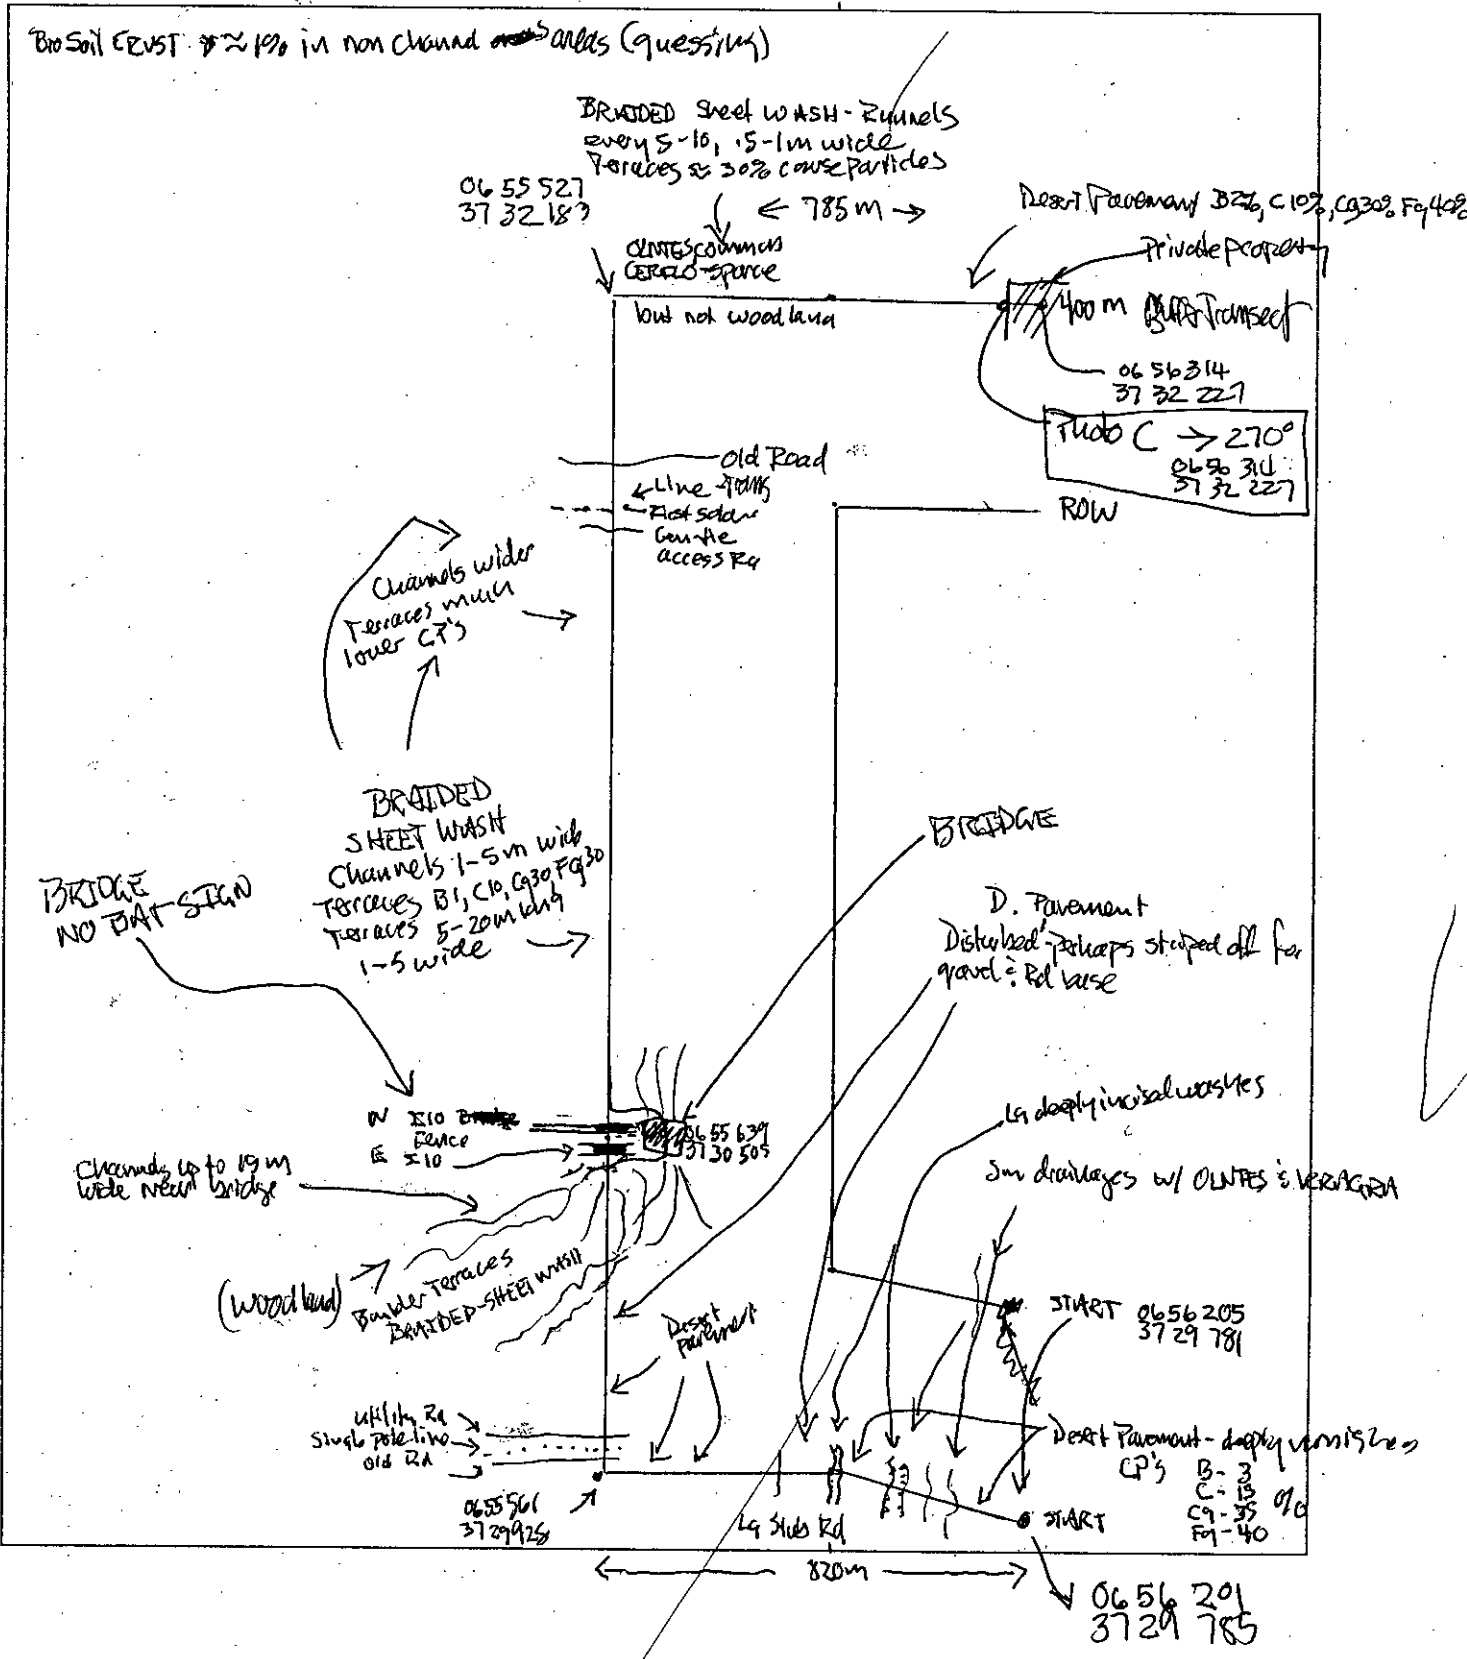 Bio Soil CRUST ≈ 1% in non channel areas (guessing)
BRAIDED Sheet WASH - Runnels
every 5-10, .5-1m wide
Terraces ≈ 30% course Particles
06 55 527
37 32 183
← 785m →
Desert Pavement B2%, C10%, Cg30% Fg40%
OLNTES common
CERFLO-sparce
but not woodland
Private property
400m Transect
06 56 314
37 32 227
Photo C → 270°
0656 314
37 32 227
ROW
Old Road
Line
First Solar
Gen-tie
access Rd
Channels wider
Terraces much
lower CP's
BRAIDED
SHEET WASH
Channels 1-5m wide
Terraces B1, C10, Cg30, Fg30
Terraces 5-20m long
1-5 wide
BRIDGE
NO BAT SIGN
BRIDGE
D. Pavement
Disturbed - Perhaps striped off for
gravel & Rd base
W I10
Fence
E I10
0655 639
3730 505
Channels up to 15m
wide near bridge
Lg deeply incised washes
Sm drainages w/ OLNTES &
(woodland)
Boulder Terraces
BRAIDED-SHEET WASH
Desert
Pavement
START 0656 205
3729 781
Utility Rd
Single Pole line
Old Rd
0655561
3729928
Lg Slab Rd
START
Desert Pavement - deeply varnished
CP's B - 3
C - 13
Cg - 35 %
Fg - 40
820m
0656 201
3729 785